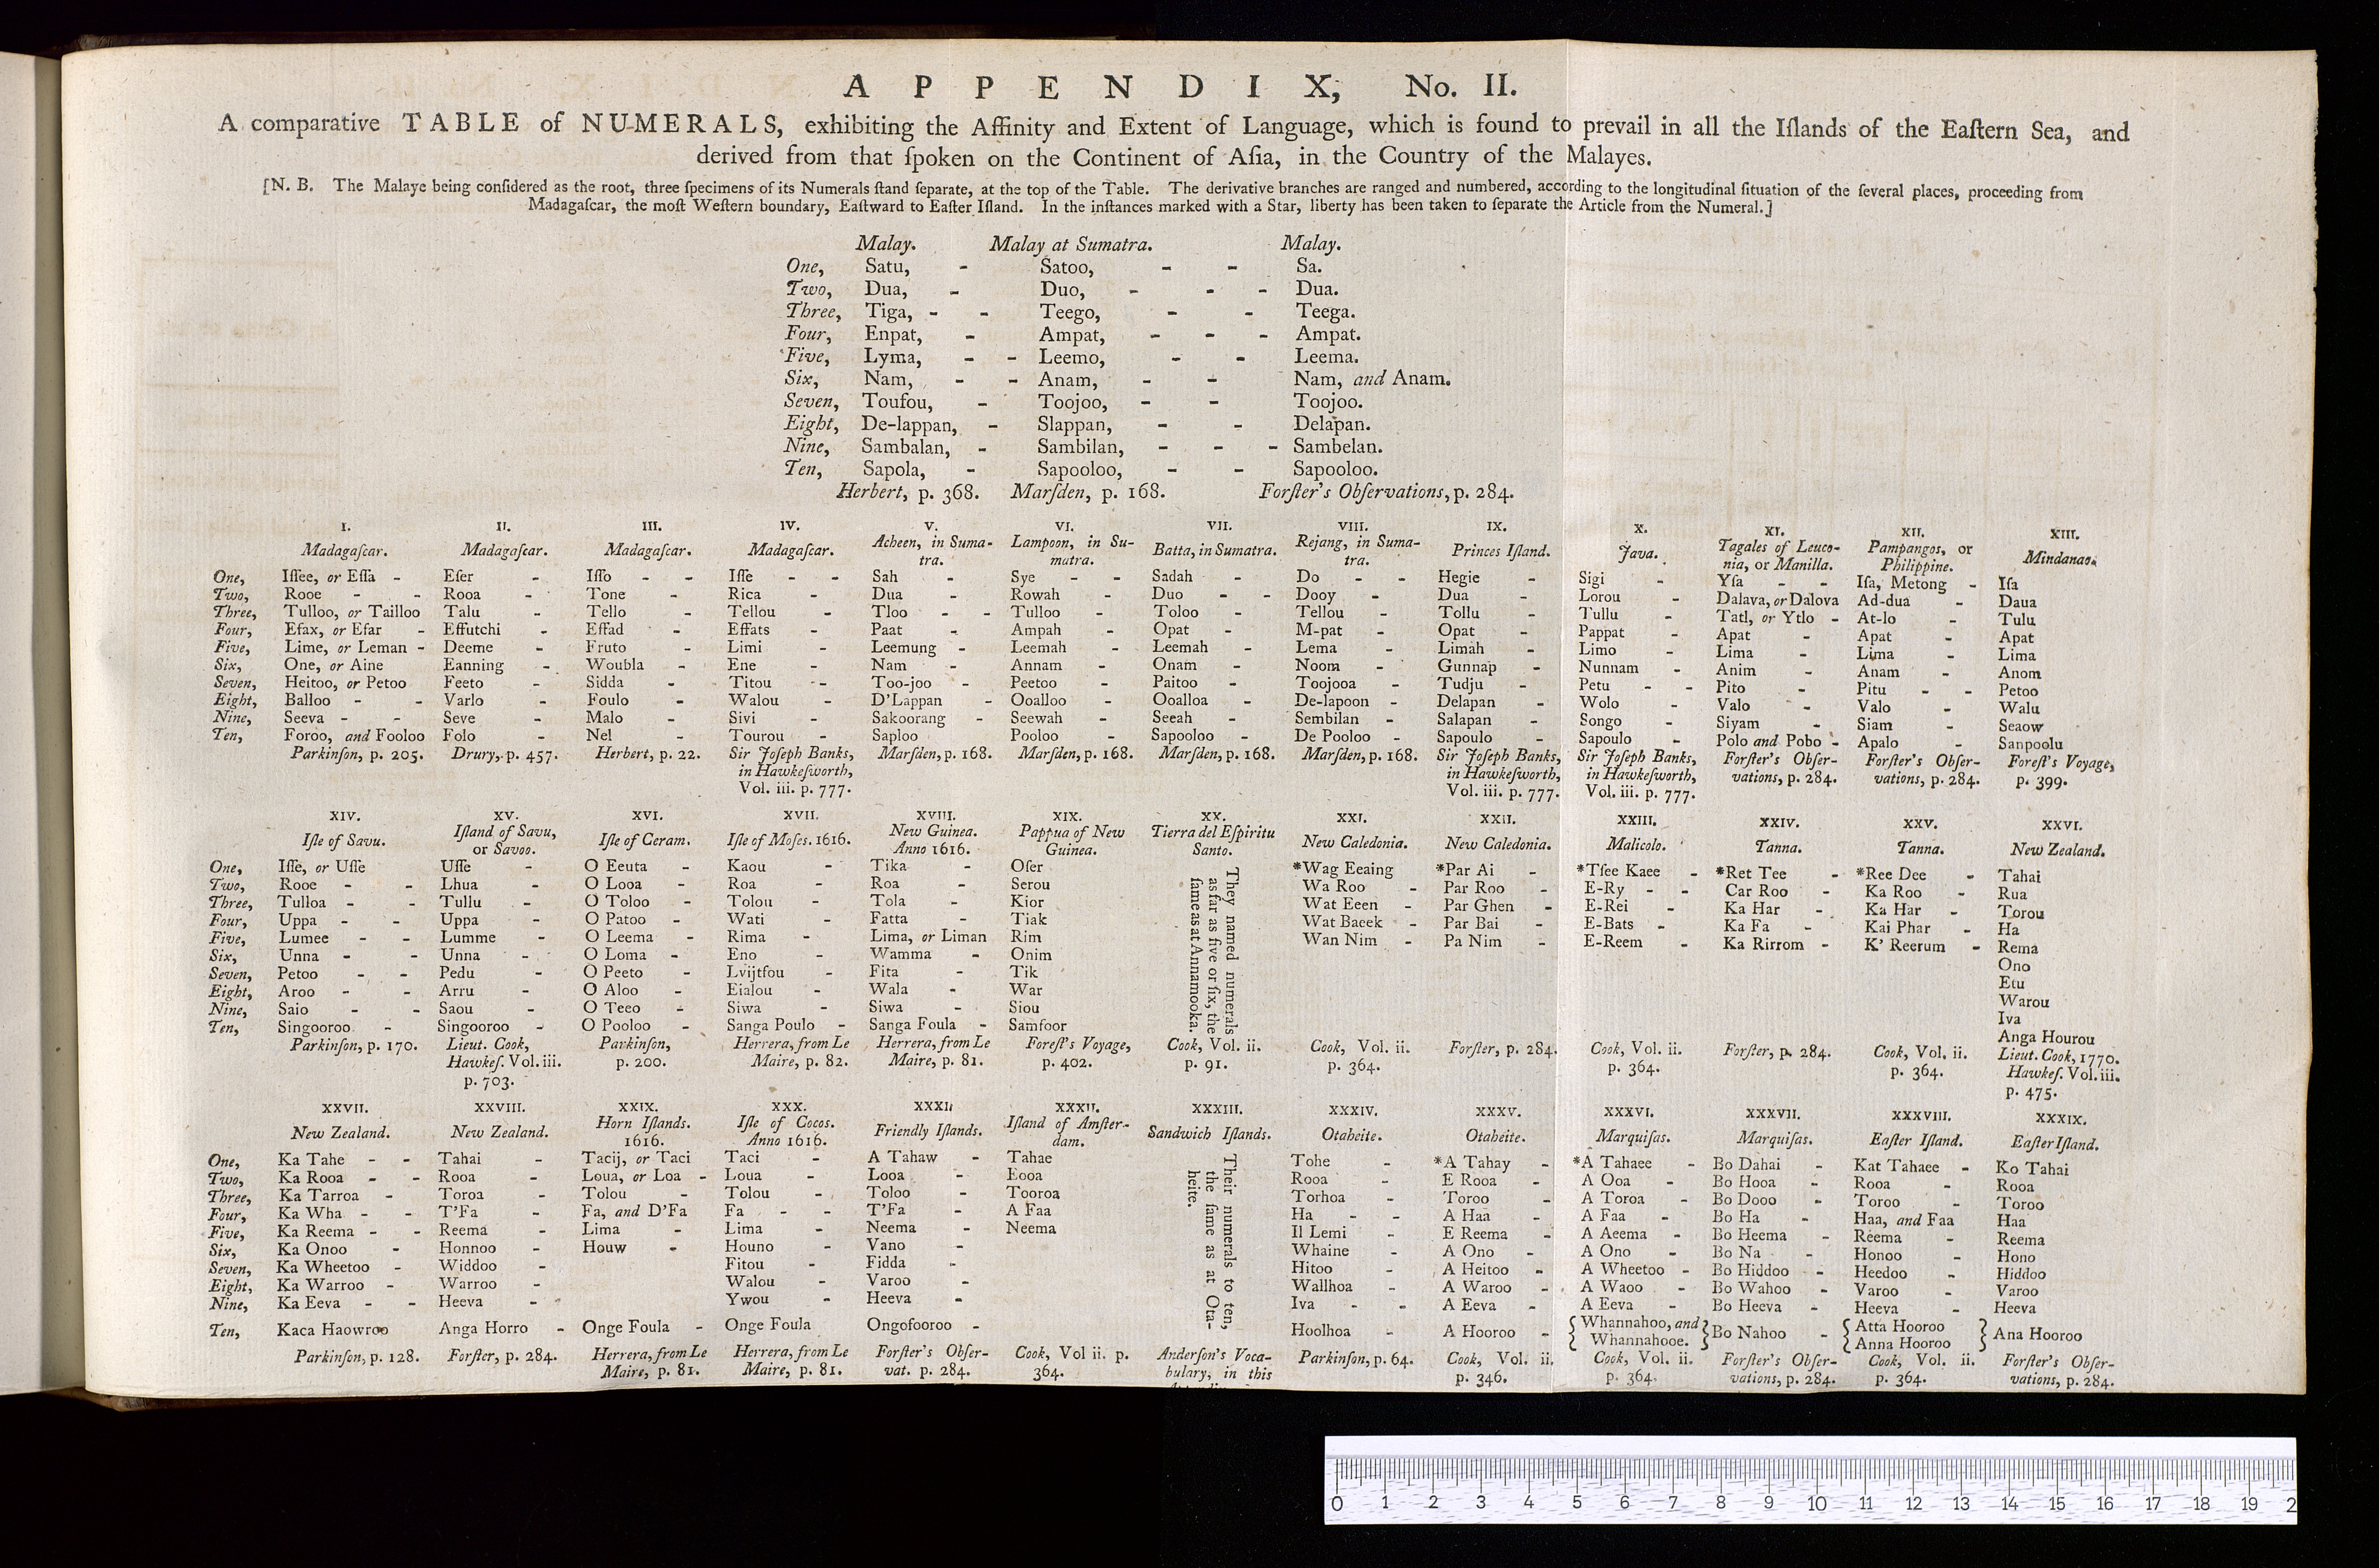 APPENDIX, No. II.
A comparative TABLE of NUMERALS, exhibiting the Affinity and Extent of Language, which is found to prevail in all the Iſlands of the Eaſtern Sea, and
derived from that ſpoken on the Continent of Aſia, in the Country of the Malayes.
[N. B. The Malaye being conſidered as the root, three ſpecimens of its Numerals ſtand ſeparate, at the top of the Table. The derivative branches are ranged and numbered, according to the longitudinal ſituation of the ſeveral places, proceeding from
Madagaſcar, the moſt Weſtern boundary, Eaſtward to Eaſter Iſland. In the inſtances marked with a Star, liberty has been taken to ſeparate the Article from the Numeral.]
Malay. Malay at Sumatra. Malay.
One, Satu, - Satoo, - - Sa.
Two, Dua, - Duo, - - - Dua.
Three, Tiga, - - Teego, - - Teega.
Four, Enpat, - Ampat, - - - Ampat.
Five, Lyma, - - Leemo, - - Leema.
Six, Nam, - - Anam, - - Nam, and Anam.
Seven, Toufou, - Toojoo, - - Toojoo.
Eight, De-lappan, - Slappan, - - Delapan.
Nine, Sambalan, - Sambilan, - - - Sambelan.
Ten, Sapola, - Sapooloo, - - Sapooloo.
Herbert, p. 368. Marſden, p. 168. Forſter's Obſervations, p. 284.
I. II. III. IV. V. VI. VII. VIII. IX. X. XI. XII. XIII.
Madagaſcar. Madagaſcar. Madagaſcar. Madagaſcar. Acheen, in Suma- Lampoon, in Su- Batta, in Sumatra. Rejang, in Suma- Princes Iſland. Java. Tagales of Leuco- Pampangos, or Mindanao.
tra. matra. tra. nia, or Manilla. Philippine.
One, Iſſee, or Eſſa - Eſer - Iſſo - - Iſſe - - Sah - Sye - - Sadah - Do - - Hegie - Sigi - Yſa - - Iſa, Metong - Iſa
Two, Rooe - - Rooa - Tone - Rica - Dua - Rowah - Duo - - Dooy - Dua - Lorou - Dalava, or Dalova Ad-dua - Daua
Three, Tulloo, or Tailloo Talu - Tello - Tellou - Tloo - - Tulloo - Toloo - Tellou - Tollu - Tullu - Tatl, or Ytlo - At-lo - Tulu
Four, Efax, or Efar - Effutchi - Effad - Effats - Paat - Ampah - Opat - M-pat - Opat - Pappat - Apat - Apat - Apat
Five, Lime, or Leman - Deeme - Fruto - Limi - Leemung - Leemah - Leemah - Lema - Limah - Limo - Lima - Lima - Lima
Six, One, or Aine Eanning - Woubla - Ene - Nam - Annam - Onam - Noom - Gunnap - Nunnam - Anim - Anam - Anom
Seven, Heitoo, or Petoo Feeto - Sidda - Titou - Too-joo - Peetoo - Paitoo - Toojooa - Tudju - Petu - - Pito - Pitu - - Petoo
Eight, Balloo - - Varlo - Foulo - Walou - D'Lappan - Ooalloo - Ooalloa - De-lapoon - Delapan - Wolo - Valo - Valo - Walu
Nine, Seeva - - Seve - Malo - Sivi - Sakoorang - Seewah - Seeah - Sembilan - Salapan - Songo - Siyam - Siam - Seaow
Ten, Foroo, and Fooloo Folo - Nel - Tourou - Saploo - Pooloo - Sapooloo - De Pooloo - Sapoulo - Sapoulo - Polo and Pobo - Apalo - Sanpoolu
Parkinſon, p. 205. Drury, p. 457. Herbert, p. 22. Sir Joſeph Banks, Marſden, p. 168. Marſden, p. 168. Marſden, p. 168. Marſden, p. 168. Sir Joſeph Banks, Sir Joſeph Banks, Forſter's Obſer- Forſter's Obſer- Foreſt's Voyage,
in Hawkeſworth, in Hawkeſworth, in Hawkeſworth, vations, p. 284. vations, p. 284. p. 399.
Vol. iii. p. 777. Vol. iii. p. 777. Vol. iii. p. 777.
XIV. XV. XVI. XVII. XVIII. XIX. XX. XXI. XXII. XXIII. XXIV. XXV. XXVI.
Iſle of Savu. Iſland of Savu, Iſle of Ceram. Iſle of Moſes. 1616. New Guinea. Pappua of New Tierra del Eſpiritu New Caledonia. New Caledonia. Malicolo. Tanna. Tanna. New Zealand.
or Savoo. Anno 1616. Guinea. Santo.
One, Iſſe, or Uſſe Uſſe - O Eeuta - Kaou - Tika - Oſer *Wag Eeaing *Par Ai - *Tſee Kaee - *Ret Tee - *Ree Dee - Tahai
Two, Rooe - - Lhua - O Looa - Roa - Roa - Serou Wa Roo - Par Roo - E-Ry - - Car Roo - Ka Roo - Rua
Three, Tulloa - - Tullu - O Toloo - Tolou - Tola - Kior Wat Eeen - Par Ghen - E-Rei - Ka Har - Ka Har - Torou
Four, Uppa - - Uppa - O Patoo - Wati - Fatta - Tiak Wat Baeek - Par Bai - E-Bats - Ka Fa - Kai Phar - Ha
Five, Lumee - - Lumme - O Leema - Rima - Lima, or Liman Rim Wan Nim - Pa Nim - E-Reem - Ka Rirrom - K' Reerum - Rema
Six, Unna - - Unna - O Loma - Eno - Wamma - Onim Ono
Seven, Petoo - - Pedu - O Peeto - Lvijtfou - Fita - Tik Etu
Eight, Aroo - - Arru - O Aloo - Eialou - Wala - War Warou
Nine, Saio - - Saou - O Teeo - Siwa - Siwa - Siou Iva
Ten, Singooroo - Singooroo - O Pooloo - Sanga Poulo - Sanga Foula - Samfoor Anga Hourou
They named numerals
as far as five or ſix, the
ſame as at Annamooka.
Parkinſon, p. 170. Lieut. Cook, Parkinſon, Herrera, from Le Herrera, from Le Foreſt's Voyage, Cook, Vol. ii. Cook, Vol. ii. Forſter, p. 284. Cook, Vol. ii. Forſter, p. 284. Cook, Vol. ii. Lieut. Cook, 1770.
Hawkeſ. Vol. iii. p. 200. Maire, p. 82. Maire, p. 81. p. 402. p. 91. p. 364. p. 364. p. 364. Hawkeſ. Vol. iii.
p. 703. p. 475.
XXVII. XXVIII. XXIX. XXX. XXXI. XXXII. XXXIII. XXXIV. XXXV. XXXVI. XXXVII. XXXVIII. XXXIX.
New Zealand. New Zealand. Horn Iſlands. Iſle of Cocos. Friendly Iſlands. Iſland of Amſter- Sandwich Iſlands. Otaheite. Otaheite. Marquiſas. Marquiſas. Eaſter Iſland. Eaſter Iſland.
1616. Anno 1616. dam.
One, Ka Tahe - - Tahai - Tacij, or Taci Taci - A Tahaw - Tahae Tohe - *A Tahay - *A Tahaee - Bo Dahai - Kat Tahaee - Ko Tahai
Two, Ka Rooa - - Rooa - Loua, or Loa - Loua - Looa - Eooa Rooa - E Rooa - A Ooa - Bo Hooa - Rooa - Rooa
Three, Ka Tarroa - Toroa - Tolou - Tolou - Toloo - Tooroa Torhoa - Toroo - A Toroa - Bo Dooo - Toroo - Toroo
Four, Ka Wha - - T'Fa - Fa, and D'Fa Fa - - T'Fa - A Faa Ha - - A Haa - A Faa - Bo Ha - Haa, and Faa Haa
Five, Ka Reema - - Reema - Lima - Lima - Neema - Neema Il Lemi - E Reema - A Aeema - Bo Heema - Reema - Reema
Six, Ka Onoo - Honnoo - Houw - Houno - Vano - Whaine - A Ono - A Ono - Bo Na - Honoo - Hono
Seven, Ka Wheetoo - Widdoo - Fitou - Fidda - Hitoo - A Heitoo - A Wheetoo - Bo Hiddoo - Heedoo - Hiddoo
Eight, Ka Warroo - Warroo - Walou - Varoo - Wallhoa - A Waroo - A Waoo - Bo Wahoo - Varoo - Varoo
Nine, Ka Eeva - - Heeva - Ywou - Heeva - Iva - - A Eeva - A Eeva - Bo Heeva - Heeva - Heeva
Ten, Kaca Haowroo Anga Horro - Onge Foula - Onge Foula Ongofooroo - Hoolhoa - A Hooroo - { Whannahoo, and Whannahooe. } Bo Nahoo - { Atta Hooroo Anna Hooroo } Ana Hooroo
Their numerals to ten,
the ſame as at Ota-
heite.
Parkinſon, p. 128. Forſter, p. 284. Herrera, from Le Herrera, from Le Forſter's Obſer- Cook, Vol ii. p. Anderſon's Voca- Parkinſon, p. 64. Cook, Vol. ii. Cook, Vol. ii. Forſter's Obſer- Cook, Vol. ii. Forſter's Obſer-
Maire, p. 81. Maire, p. 81. vat. p. 284. 364. bulary, in this p. 346. p. 364. vations, p. 284. p. 364. vations, p. 284.
0 1 2 3 4 5 6 7 8 9 10 11 12 13 14 15 16 17 18 19 2